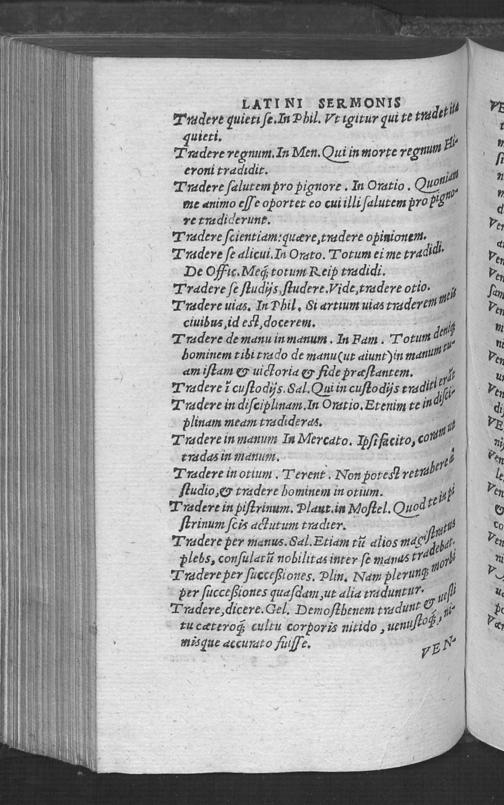 LATINI SERMONIS
Tradere quieti se. In Phil. Vt igitur qui te tradet ita
quieti.
Tradere regnum. In Men. Qui in morte regnum Hi-
eroni tradidit.
Tradere salutem pro pignore. In Oratio. Quoniam
me animo esse oportet eo cui illi salutem pro pigno-
re tradiderunt.
Tradere scientiam: quære, tradere opinionem.
Tradere se alicui. In Orato. Totum ei me tradidi.
De Offic. Meq́; totum Reip tradidi.
Tradere se studijs, studere. Vide, tradere otio.
Tradere uias. In Phil. Si artium uias traderem meis
ciuibus, id est, docerem.
Tradere de manu in manum. In Fam. Totum deniq;
hominem tibi trado de manu (ut aiunt) in manum tu-
am istam & uictoria & fide præstantem.
Tradere ī custodijs. Sal. Qui in custodijs traditi erāt
Tradere in disciplinam. In Oratio. Etenim te in disci-
plinam meam tradideras.
Tradere in manum In Mercato. Ipsi facito, coram ut
tradas in manum.
Tradere in otium. Terent. Non potest retrahere à
studio, & tradere hominem in otium.
Tradere in pistrinum. Plaut. in Mostel. Quod te in pi
strinum scis actutum tradier.
Tradere per manus. Sal. Etiam tū alios magistratus
plebs, consulatū nobilitas inter se manus tradebat.
Tradere per successiones. Plin. Nam plerunq; morbi
per successiones quasdam, ut alia traduntur.
Tradere, dicere. Gel. Demosthenem tradunt & uesti
tu cæteroq́; cultu corporis nitido, uenustoq́;, ni-
misque accurato fuisse.
VEN-